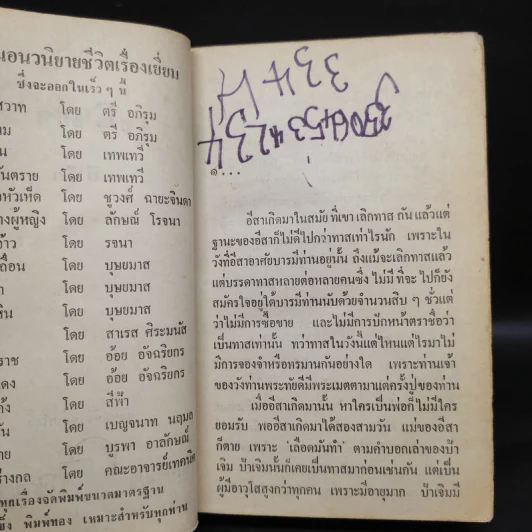 นอนวนิยายชีวิตเรื่องเยี่ยม
ซึ่งจะออกในเร็ว ๆ นี้
สวาท โดย ตรี อภิรุม
ม โดย ตรี อภิรุม
น โดย เทพเทวี
นตราย โดย เทพเทวี
หัวเห็ด โดย ชูวงศ์ ฉายะจินดา
างผู้หญิง โดย ลักษณ์ โรจนา
ว้าว โดย รจนา
ถื่อน โดย บุษยมาส
า โดย บุษยมาส
หิน โดย บุษยมาส
โดย สาเรส ศิระมนัส
ราช โดย อ้อย อัจฉริยกร
แดง โดย อ้อย อัจฉริยกร
ค้ง โดย สีฟ้า
ัน โดย เบญจนาท นฤมล
ร โดย บูรพา อาลักษณ์
ร่างกล โดย คณะอาจารย์เทคนิค
ทุกเรื่องจัดพิมพ์ขนาดมาตรฐาน
ข็ง พิมพ์ทอง เหมาะสำหรับทุกท่าน
334
4234
๑...
อีสาเกิดมาในสมัย ที่เขา เลิกทาส กัน แล้วแต่
ฐานะของอีสาก็ไม่ดีไปกว่าทาสเท่าไรนัก เพราะใน
วังที่อีสาอาศัยบารมีท่านอยู่นั้น ถึงแม้จะเลิกทาสแล้ว
แต่บรรดาทาสหลายต่อหลายคนซึ่ง ไม่มี ที่จะ ไปก็ยัง
สมัครใจอยู่ใต้บารมีท่านนับด้วยจำนวนสิบ ๆ ชั่วแต่
ว่าไม่มีการซื้อขาย และไม่มีการปักหน้าตราชื่อว่า
เป็นทาสเท่านั้น ทว่าทาสในวังนี้แต่ไหนแต่ไรมาไม่
มีการจองจำหรือทรมานกันอย่างใด เพราะท่านเจ้า
ของวังท่านพระทัยดีมีพระเมตตามาแต่ครั้งปู่ของท่าน
เมื่ออีสาเกิดมานั้น หาใครเป็นพ่อก็ไม่มีใคร
ยอมรับ พออีสาเกิดมาได้สองสามวัน แม่ของอีสา
ก็ตาย เพราะ 'เลือดมันทำ' ตามคำบอกเล่าของป้า
เจิม ป้าเจิมนั้นก็เคยเป็นทาสมาก่อนเช่นกัน แต่เป็น
ผู้มีอาวุโสสูงกว่าทุกคน เพราะมีอายุมาก ป้าเจิมมี